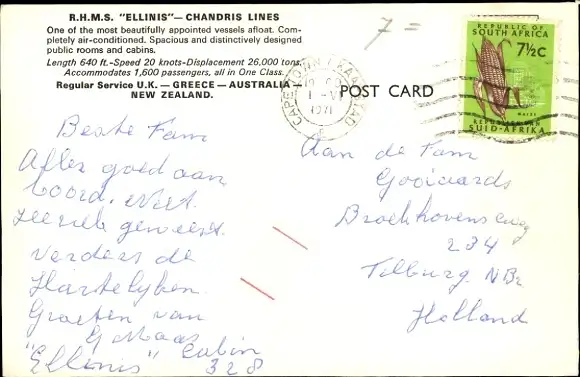 R.H.M.S. "ELLINIS" — CHANDRIS LINES
One of the most beautifully appointed vessels afloat. Com-
pletely air-conditioned. Spacious and distinctively designed
public rooms and cabins.
Length 640 ft.-Speed 20 knots-Displacement 26,000 tons.
Accommodates 1,600 passengers, all in One Class.
Regular Service U.K. — GREECE — AUSTRALIA —
NEW ZEALAND.
7=
POST CARD
CAPE TOWN KAAPSTAD
1971
REPUBLIC OF
SOUTH AFRICA
7½c
MAIZE
REPUBLIEK VAN
SUID-AFRIKA
Beste Fam
Alles goed aan
boord. niet
zeeziek geweest.
verders de
Hartelijken
Groeten van
G Maas
"Ellinis" Cabin
328
Aan de Fam
Gooiaards
Broekhovenseweg
234
Tilburg NBr
Holland